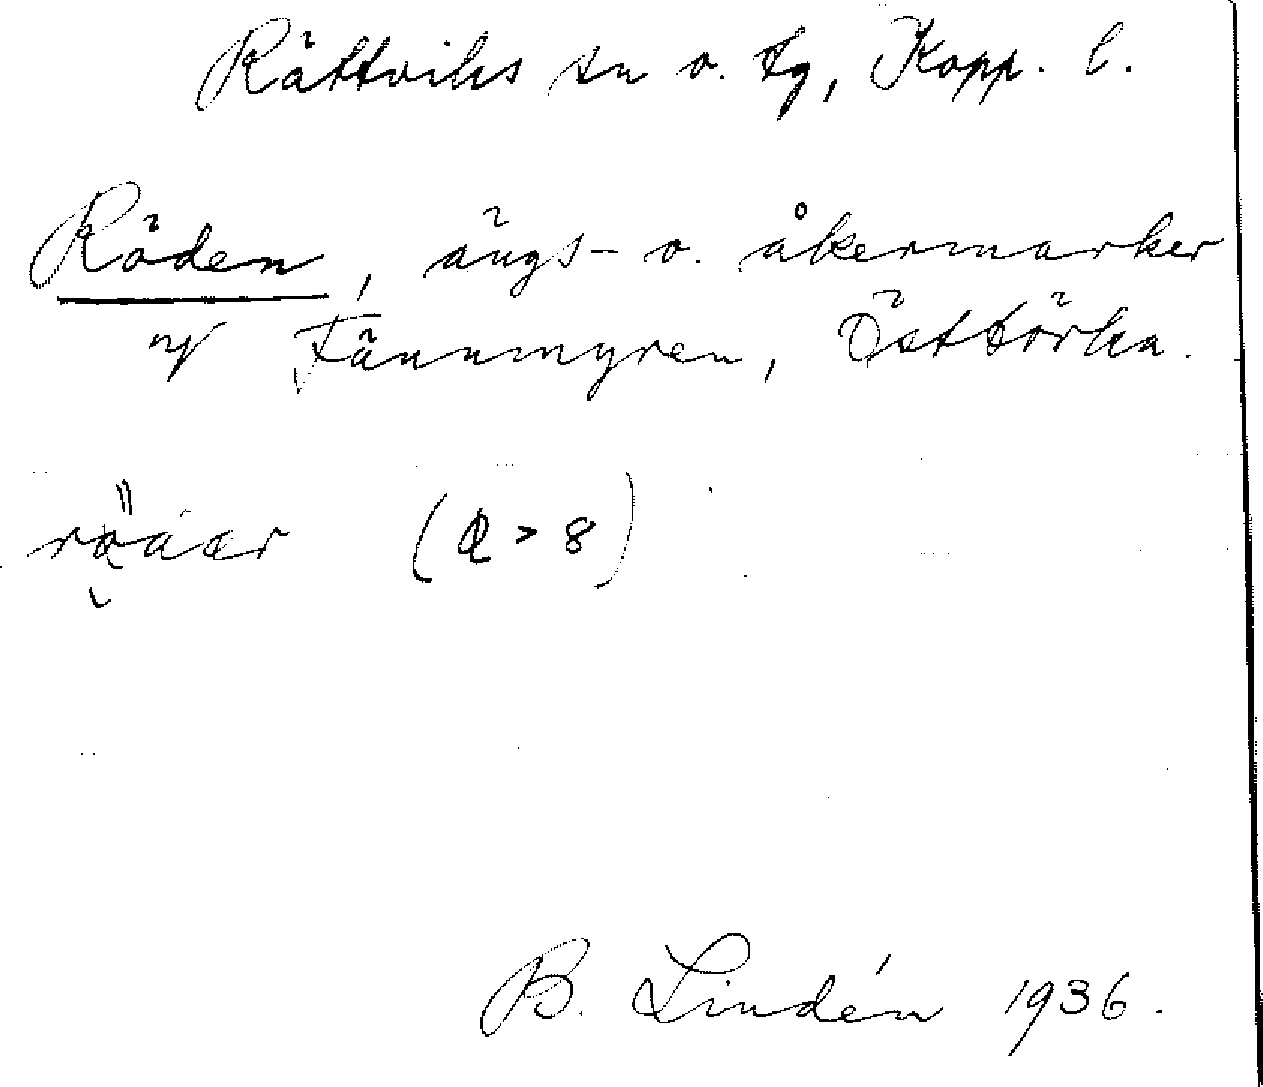 Rättviks sn o. tg, Kopp. l.
Röden, ängs- o. åkermarker
vf Tännmyren, Östbörka.
(a > 8)
B. Lindén 1936.